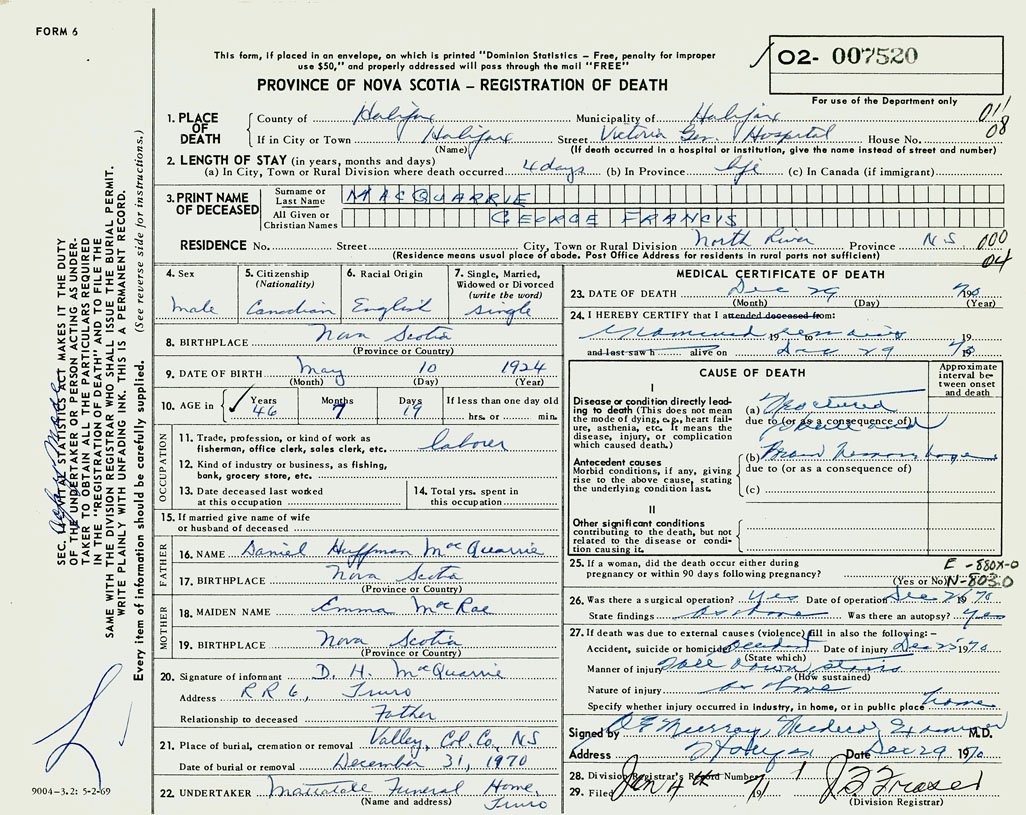 FORM 6
This form, if placed in an envelope, on which is printed "Dominion Statistics – Free, penalty for improper
use $50," and properly addressed will pass through the mail "FREE"
PROVINCE OF NOVA SCOTIA – REGISTRATION OF DEATH
02- 007520
For use of the Department only
1. PLACE OF DEATH
County of Halifax Municipality of Halifax 011
If in City or Town Halifax Street Victoria Gen. Hospital House No. 08
(Name) (If death occurred in a hospital or institution, give the name instead of street and number)
2. LENGTH OF STAY (in years, months and days)
(a) In City, Town or Rural Division where death occurred 4 days (b) In Province life (c) In Canada (if immigrant)
3. PRINT NAME OF DECEASED
Surname or Last Name MACQUARRIE
All Given or Christian Names GEORGE FRANCIS
RESIDENCE No. Street City, Town or Rural Division North River Province N.S. 000
(Residence means usual place of abode. Post Office Address for residents in rural parts not sufficient) 04
4. Sex
male
5. Citizenship
(Nationality)
Canadian
6. Racial Origin
English
7. Single, Married,
Widowed or Divorced
(write the word)
single
8. BIRTHPLACE Nova Scotia
(Province or Country)
9. DATE OF BIRTH May 10 1924
(Month) (Day) (Year)
10. AGE in Years Months Days If less than one day old
46 7 19 hrs. or min.
OCCUPATION
11. Trade, profession, or kind of work as
fisherman, office clerk, sales clerk, etc. laborer
12. Kind of industry or business, as fishing,
bank, grocery store, etc.
13. Date deceased last worked
at this occupation
14. Total yrs. spent in
this occupation
15. If married give name of wife
or husband of deceased
FATHER
16. NAME Daniel Huffman MacQuarrie
17. BIRTHPLACE Nova Scotia
(Province or Country)
MOTHER
18. MAIDEN NAME Emma MacRae
19. BIRTHPLACE Nova Scotia
(Province or Country)
20. Signature of informant D. H. MacQuarrie
Address R R 6, Truro
Relationship to deceased Father
21. Place of burial, cremation or removal Valley, Col. Co, NS
Date of burial or removal December 31, 1970
22. UNDERTAKER Mattatall Funeral Home,
(Name and address) Truro
MEDICAL CERTIFICATE OF DEATH
23. DATE OF DEATH Dec 29 1970
(Month) (Day) (Year)
24. I HEREBY CERTIFY that I attended deceased from:
Examined remains 19 to 19
and last saw h alive on Dec 29 1970
CAUSE OF DEATH
Approximate
interval be-
tween onset
and death
I
Disease or condition directly lead-
ing to death (This does not mean
the mode of dying, e.g., heart fail-
ure, asthenia, etc. It means the
disease, injury, or complication
which caused death.)
(a) Fractured
due to (or as a consequence of)
skull and
(b) Brain hemorrhage
due to (or as a consequence of)
(c)
Antecedent causes
Morbid conditions, if any, giving
rise to the above cause, stating
the underlying condition last.
II
Other significant conditions
contributing to the death, but not
related to the disease or condi-
tion causing it.
25. If a woman, did the death occur either during E-880X-0
pregnancy or within 90 days following pregnancy?
(Yes or No) N-803.0
26. Was there a surgical operation? Yes Date of operation Dec 26 1970
State findings as above Was there an autopsy? yes
27. If death was due to external causes (violence) fill in also the following:–
Accident, suicide or homicide Accident Date of injury Dec 25 1970
(State which)
Manner of injury Fall down stairs
(How sustained)
Nature of injury as above
Specify whether injury occurred in Industry, in home, or in public place home
Signed by Murray, Medical Examiner M.D.
Address Halifax Date Dec 29 1970
28. Division Registrar's Record Number 1
29. Filed Jan 4th 71
(Division Registrar)
SEC. VITAL STATISTICS ACT MAKES IT THE DUTY
OF THE UNDERTAKER OR PERSON ACTING AS UNDER-
TAKER TO OBTAIN ALL THE PARTICULARS REQUIRED
IN THE "REGISTRATION OF DEATH" AND TO FILE THE
SAME WITH THE DIVISION REGISTRAR WHO SHALL ISSUE THE BURIAL PERMIT.
WRITE PLAINLY WITH UNFADING INK. THIS IS A PERMANENT RECORD.
Every item of information should be carefully supplied. (See reverse side for instructions.)
9004-3.2: 5-2-69